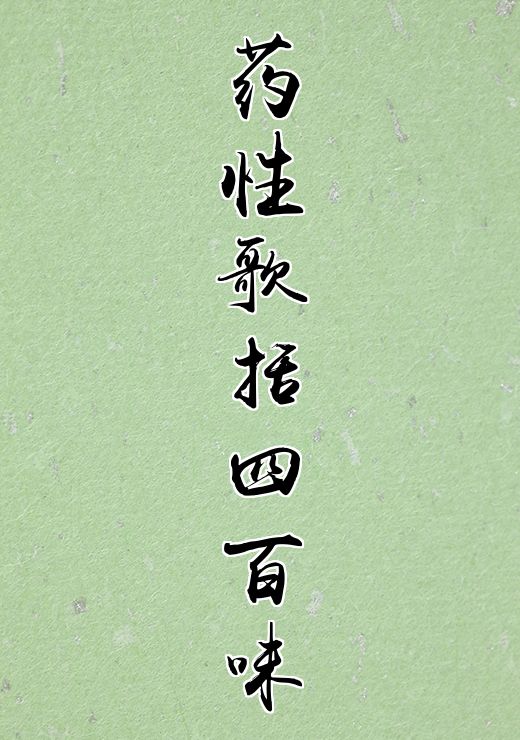 药性歌括四百味